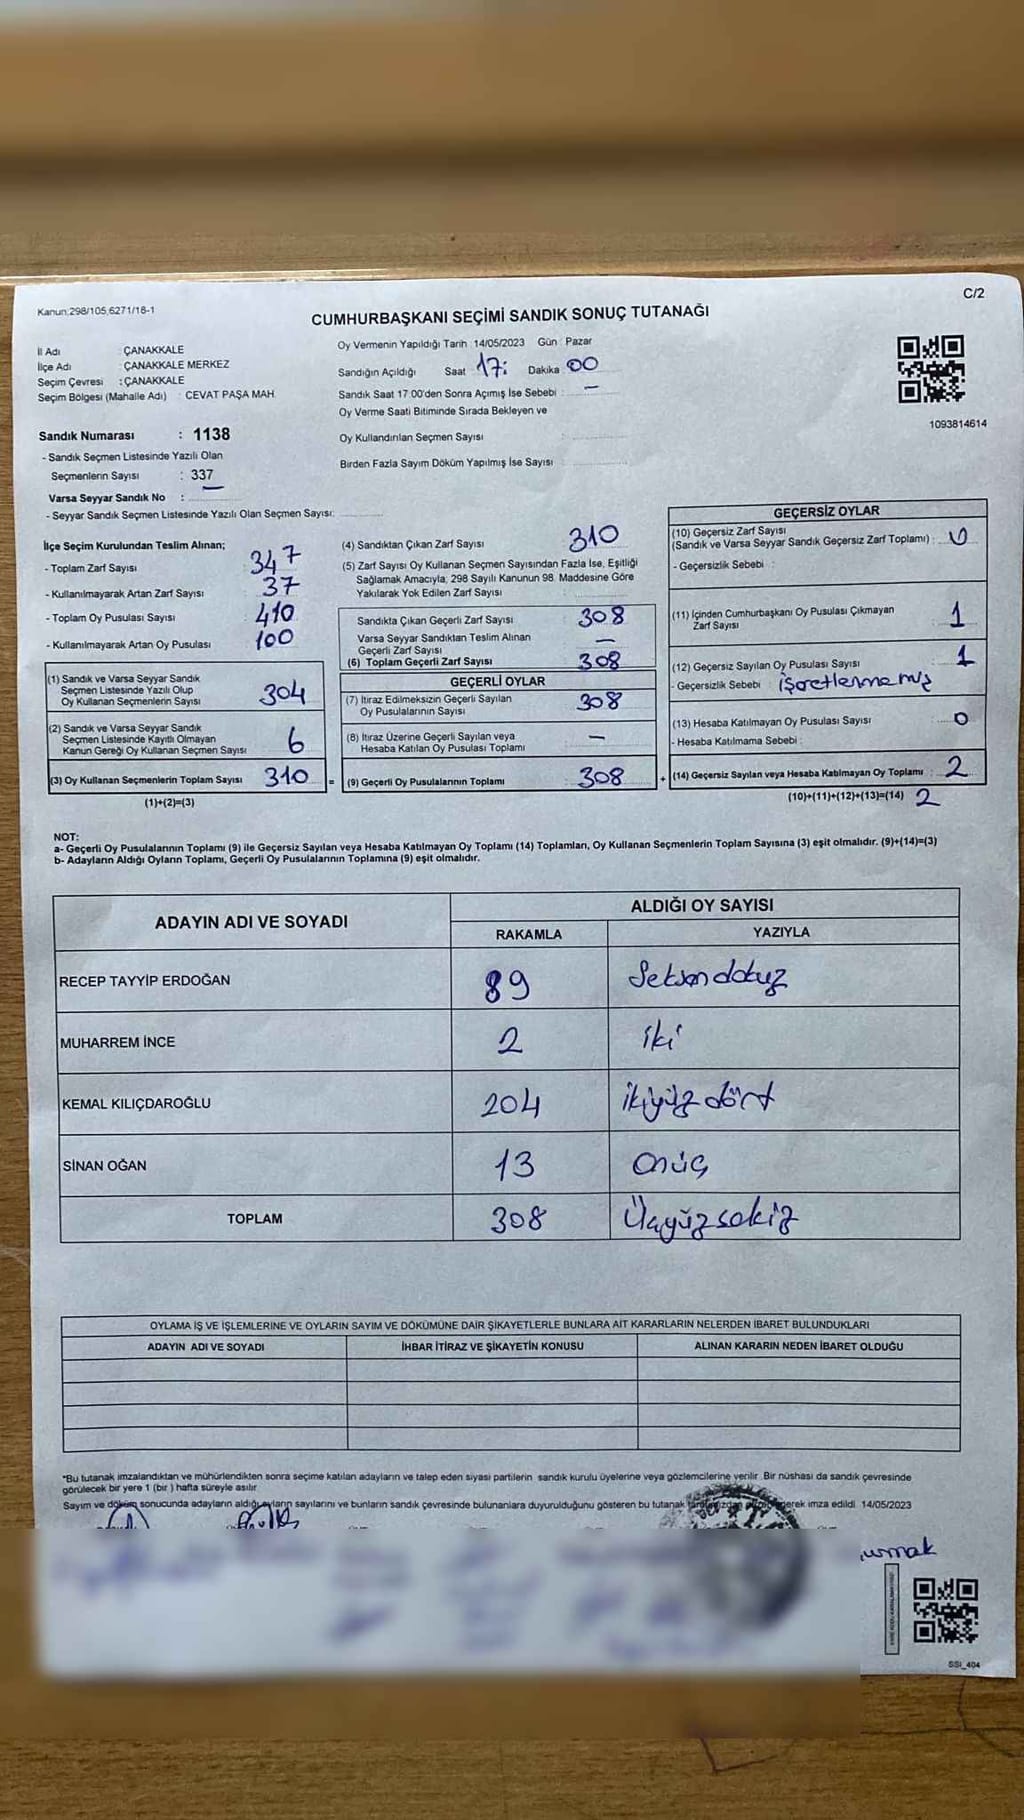 C/2
Kanun:298/105,6271/18-1
CUMHURBAŞKANI SEÇİMİ SANDIK SONUÇ TUTANAĞI
İl Adı : ÇANAKKALE
İlçe Adı : ÇANAKKALE MERKEZ
Seçim Çevresi : ÇANAKKALE
Seçim Bölgesi (Mahalle Adı) : CEVAT PAŞA MAH.
Oy Vermenin Yapıldığı Tarih : 14/05/2023 Gün : Pazar
Sandığın Açıldığı Saat 17: Dakika 00
Sandık Saat 17.00'den Sonra Açımış İse Sebebi : —
Oy Verme Saati Bitiminde Sırada Bekleyen ve
Oy Kullandırılan Seçmen Sayısı :
Birden Fazla Sayım Döküm Yapılmış İse Sayısı :
1093814614
Sandık Numarası : 1138
- Sandık Seçmen Listesinde Yazılı Olan
Seçmenlerin Sayısı : 337
Varsa Seyyar Sandık No :
- Seyyar Sandık Seçmen Listesinde Yazılı Olan Seçmen Sayısı:
İlçe Seçim Kurulundan Teslim Alınan;
- Toplam Zarf Sayısı 347
- Kullanılmayarak Artan Zarf Sayısı : 37
- Toplam Oy Pusulası Sayısı : 410
- Kullanılmayarak Artan Oy Pusulası : 100
(1) Sandık ve Varsa Seyyar Sandık
Seçmen Listesinde Yazılı Olup
Oy Kullanan Seçmenlerin Sayısı 304
(2) Sandık ve Varsa Seyyar Sandık
Seçmen Listesinde Kayıtlı Olmayan
Kanun Gereği Oy Kullanan Seçmen Sayısı 6
(3) Oy Kullanan Seçmenlerin Toplam Sayısı 310 =
(1)+(2)=(3)
(4) Sandıktan Çıkan Zarf Sayısı 310
(5) Zarf Sayısı Oy Kullanan Seçmen Sayısından Fazla İse, Eşitliği
Sağlamak Amacıyla, 298 Sayılı Kanunun 98. Maddesine Göre
Yakılarak Yok Edilen Zarf Sayısı :
Sandıkta Çıkan Geçerli Zarf Sayısı 308
Varsa Seyyar Sandıktan Teslim Alınan
Geçerli Zarf Sayısı —
(6) Toplam Geçerli Zarf Sayısı 308
GEÇERLİ OYLAR
(7) İtiraz Edilmeksizin Geçerli Sayılan
Oy Pusulalarının Sayısı 308
(8) İtiraz Üzerine Geçerli Sayılan veya
Hesaba Katılan Oy Pusulası Toplamı —
(9) Geçerli Oy Pusulalarının Toplamı 308 +
GEÇERSİZ OYLAR
(10) Geçersiz Zarf Sayısı
(Sandık ve Varsa Seyyar Sandık Geçersiz Zarf Toplamı) : 0
- Geçersizlik Sebebi :
(11) İçinden Cumhurbaşkanı Oy Pusulası Çıkmayan
Zarf Sayısı 1
(12) Geçersiz Sayılan Oy Pusulası Sayısı 1
- Geçersizlik Sebebi : işaretlenmemiş
(13) Hesaba Katılmayan Oy Pusulası Sayısı 0
- Hesaba Katılmama Sebebi :
(14) Geçersiz Sayılan veya Hesaba Katılmayan Oy Toplamı : 2
(10)+(11)+(12)+(13)=(14) 2
NOT:
a- Geçerli Oy Pusulalarının Toplamı (9) ile Geçersiz Sayılan veya Hesaba Katılmayan Oy Toplamı (14) Toplamları, Oy Kullanan Seçmenlerin Toplam Sayısına (3) eşit olmalıdır. (9)+(14)=(3)
b- Adayların Aldığı Oyların Toplamı, Geçerli Oy Pusulalarının Toplamına (9) eşit olmalıdır.
ADAYIN ADI VE SOYADI ALDIĞI OY SAYISI
RAKAMLA YAZIYLA
RECEP TAYYİP ERDOĞAN 89 Seksendokuz
MUHARREM İNCE 2 iki
KEMAL KILIÇDAROĞLU 204 ikiyüzdört
SİNAN OĞAN 13 Onüç
TOPLAM 308 Üçyüzsekiz
OYLAMA İŞ VE İŞLEMLERİNE VE OYLARIN SAYIM VE DÖKÜMÜNE DAİR ŞİKAYETLERLE BUNLARA AİT KARARLARIN NELERDEN İBARET BULUNDUKLARI
ADAYIN ADI VE SOYADI İHBAR İTİRAZ VE ŞİKAYETİN KONUSU ALINAN KARARIN NEDEN İBARET OLDUĞU
*Bu tutanak imzalandıktan ve mühürlendikten sonra seçime katılan adayların ve talep eden siyasi partilerin sandık kurulu üyelerine veya gözlemcilerine verilir. Bir nüshası da sandık çevresinde
görülecek bir yere 1 (bir ) hafta süreyle asılır.
Sayım ve döküm sonucunda adayların aldığı oyların sayılarını ve bunların sandık çevresinde bulunanlara duyurulduğunu gösteren bu tutanak imza edildi. 14/05/2023
SSI_404